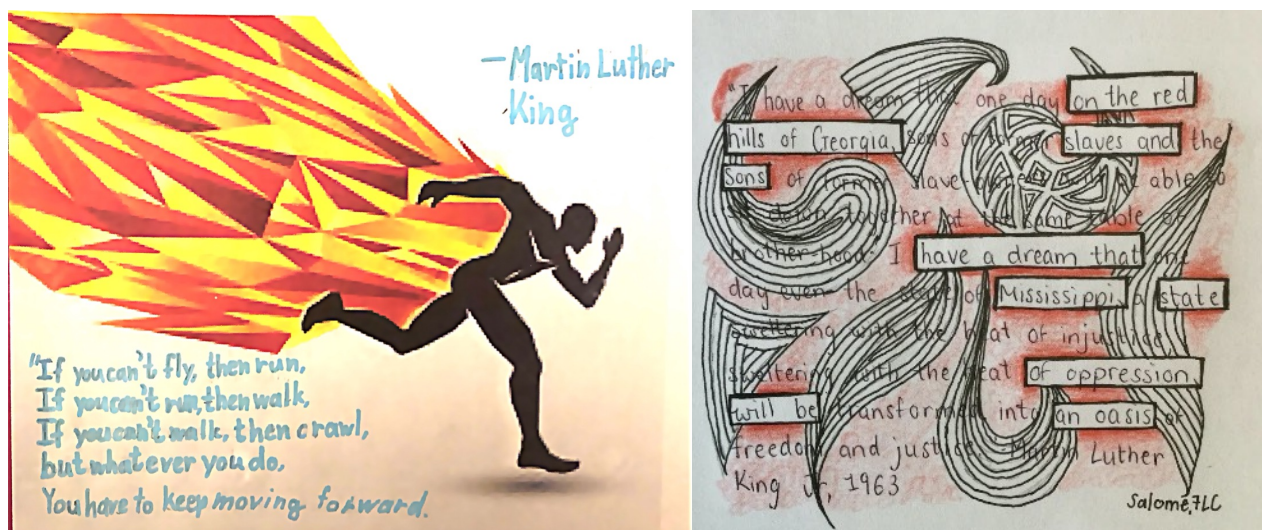 — Martin Luther
King
"If you can't fly, then run,
If you can't run, then walk,
If you can't walk, then crawl,
but whatever you do,
You have to keep moving forward.
"I have a dream that one day on the red
hills of Georgia, sons of former slaves and the
Sons of former slave able to
down together at the same table of
brother-hood" I have a dream that one
day even the state of Mississippi, a state
sweltering with the heat of injustice,
sweltering with the heat of oppression,
will be transformed into an oasis of
freedom and justice. Martin Luther
King Jr, 1963
Salomé, 7LC